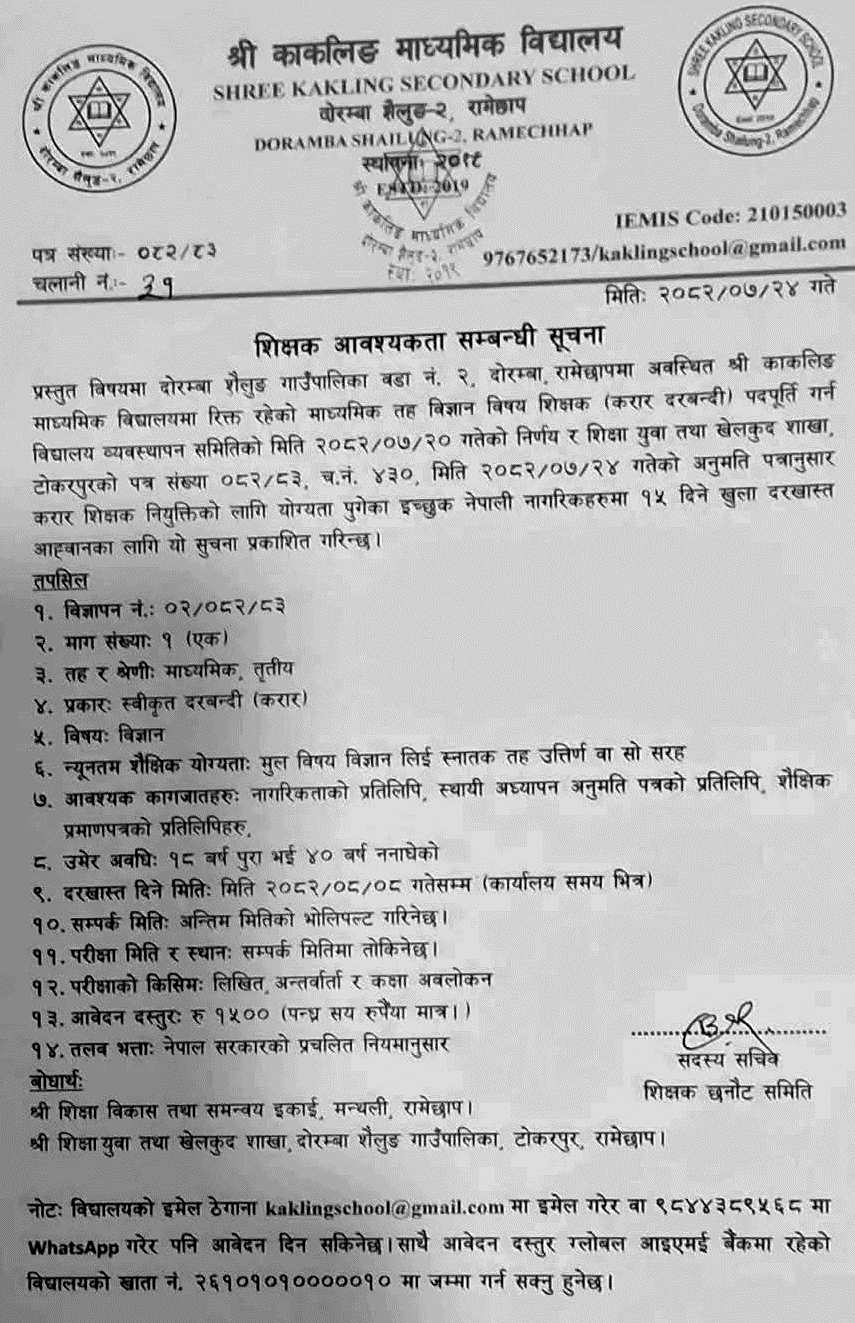 श्री काकलिङ माध्यमिक विद्यालय
SHREE KAKLING SECONDARY SCHOOL
दोरम्बा शैलुङ-२, रामेछाप
DORAMBA SHAILUNG-2, RAMECHHAP
स्थापनाः २०१९
ESTD: 2019
श्री काकलिङ माध्यमिक विद्यालय
दोरम्बा शैलुङ-२, रामेछाप
SHREE KAKLING SECONDARY SCHOOL
Doramba Shailung-2, Ramechhap
Estd: 2019
श्री काकलिङ माध्यमिक विद्यालय
दोरम्बा शैलुङ-२, रामेछाप
स्था. २०१९
IEMIS Code: 210150003
पत्र संख्याः- ०८२/८३
9767652173/kaklingschool@gmail.com
चलानी नं.:- ३१
मितिः २०८२/०७/२४ गते
शिक्षक आवश्यकता सम्बन्धी सूचना
प्रस्तुत विषयमा दोरम्बा शैलुङ गाउँपालिका वडा नं. २, दोरम्बा, रामेछापमा अवस्थित श्री काकलिङ
माध्यमिक विद्यालयमा रिक्त रहेको माध्यमिक तह विज्ञान विषय शिक्षक (करार दरबन्दी) पदपूर्ति गर्न
विद्यालय व्यवस्थापन समितिको मिति २०८२/०७/२० गतेको निर्णय र शिक्षा युवा तथा खेलकुद शाखा,
टोकरपुरको पत्र संख्या ०८२/८३, च.नं. ४३०, मिति २०८२/०७/२४ गतेको अनुमति पत्रानुसार
करार शिक्षक नियुक्तिको लागि योग्यता पुगेका इच्छुक नेपाली नागरिकहरुमा १५ दिने खुला दरखास्त
आह्वानका लागि यो सुचना प्रकाशित गरिन्छ।
तपसिल
१. विज्ञापन नं.: ०२/०८२/८३
२. माग संख्याः १ (एक)
३. तह र श्रेणीः माध्यमिक, तृतीय
४. प्रकारः स्वीकृत दरबन्दी (करार)
५. विषयः विज्ञान
६. न्यूनतम शैक्षिक योग्यताः मुल विषय विज्ञान लिई स्नातक तह उत्तिर्ण वा सो सरह
७. आवश्यक कागजातहरुः नागरिकताको प्रतिलिपि, स्थायी अध्यापन अनुमति पत्रको प्रतिलिपि, शैक्षिक
प्रमाणपत्रको प्रतिलिपिहरु,
८. उमेर अवधिः १८ बर्ष पुरा भई ४० बर्ष ननाघेको
९. दरखास्त दिने मितिः मिति २०८२/०८/०८ गतेसम्म (कार्यालय समय भित्र)
१०. सम्पर्क मितिः अन्तिम मितिको भोलिपल्ट गरिनेछ।
११. परीक्षा मिति र स्थानः सम्पर्क मितिमा तोकिनेछ।
१२. परीक्षाको किसिमः लिखित, अन्तर्वार्ता र कक्षा अवलोकन
१३. आवेदन दस्तुरः रु १५०० (पन्ध्र सय रुपैंया मात्र।)
१४. तलब भत्ताः नेपाल सरकारको प्रचलित नियमानुसार
सदस्य सचिव
शिक्षक छनौट समिति
बोधार्थः
श्री शिक्षा विकास तथा समन्वय इकाई, मन्थली, रामेछाप।
श्री शिक्षा युवा तथा खेलकुद शाखा, दोरम्बा शैलुङ गाउँपालिका, टोकरपुर, रामेछाप।
नोटः विद्यालयको इमेल ठेगाना kaklingschool@gmail.com मा इमेल गरेर वा ९८४४३८९५६८ मा
WhatsApp गरेर पनि आवेदन दिन सकिनेछ। साथै आवेदन दस्तुर ग्लोबल आइएमई बैंकमा रहेको
विद्यालयको खाता नं. २६१०१०१०००००१० मा जम्मा गर्न सक्नु हुनेछ।